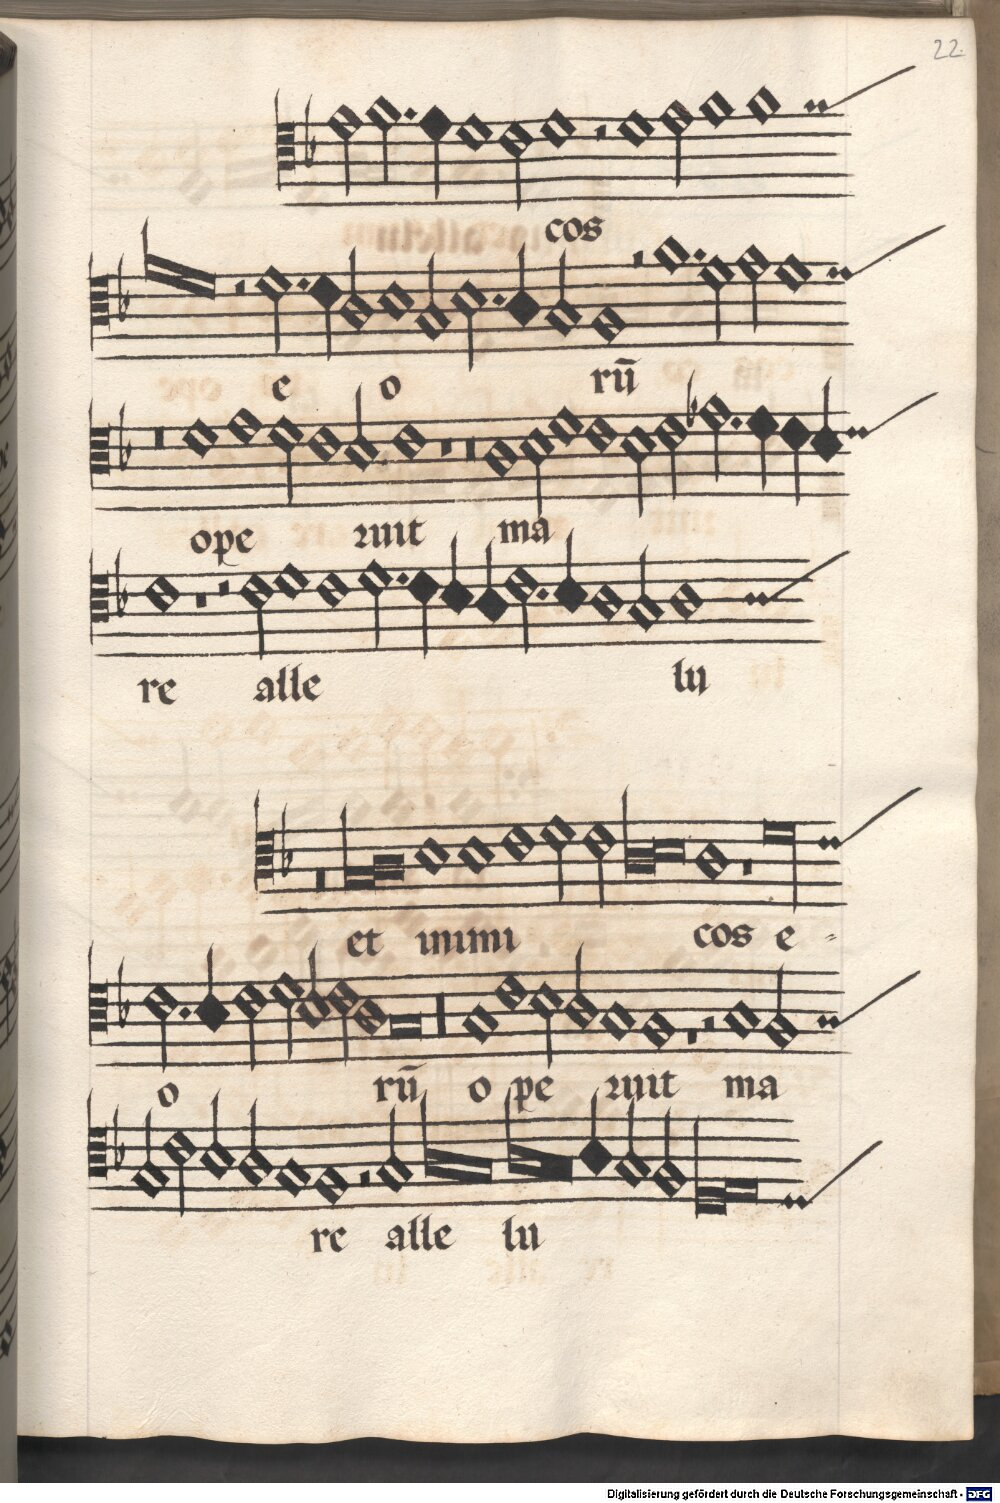 22.
cos
e o rū
ope ruit ma
re alle lu
et inimi cos e-
o rū o pe ruit ma
re alle lu
Digitalisierung gefördert durch die Deutsche Forschungsgemeinschaft - DFG